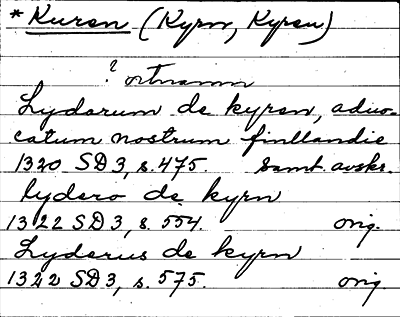 * Kuren (Kyrn, Kyren)
? ortnamn
Lydarum de kyren, advo-
catum nostrum finllandie
1320 SD3, s. 475. samt. avskr.
lydero de kyrn
1322 SD3, s. 554. orig.
Lyderus de kyrn
1322 SD3, s. 575. orig.